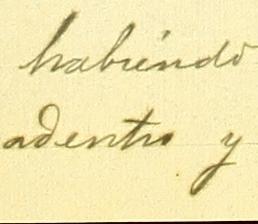 habiendo
adentro y